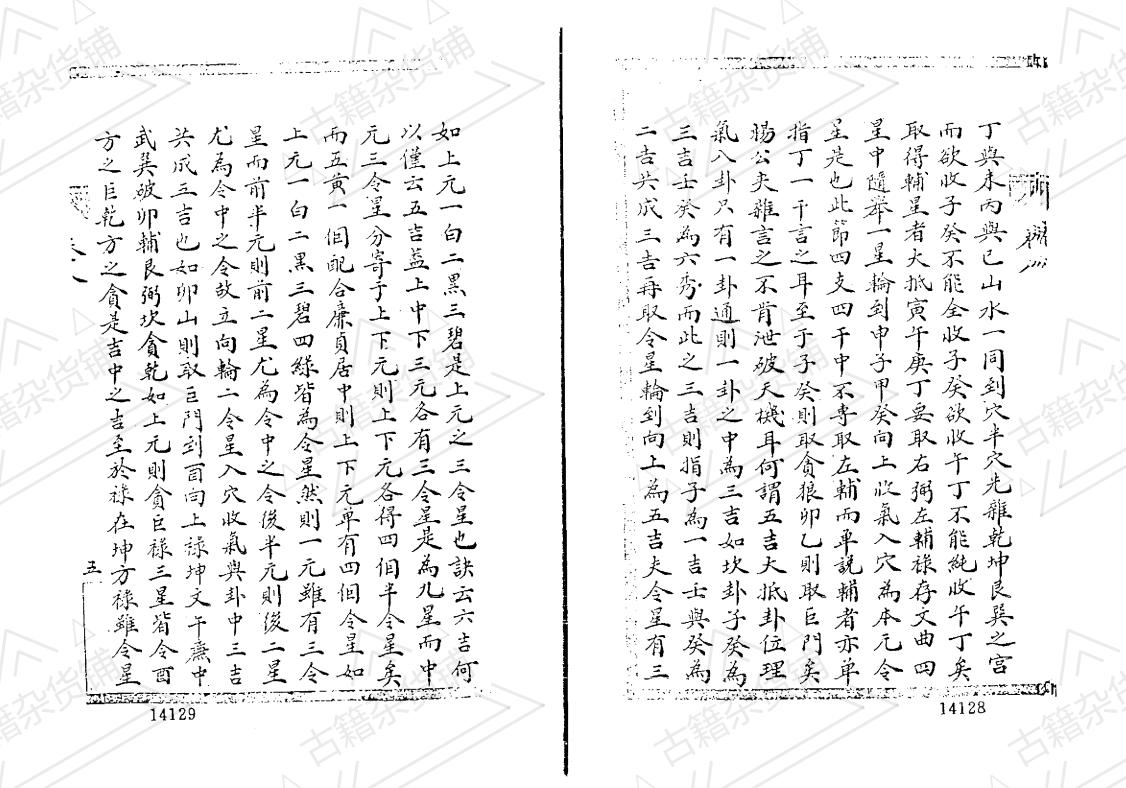 丁與未丙與巳山水一同到穴半穴先雜乾坤艮巽之宮
而欲收子癸不能全收子癸欲收午丁不能純收午丁矣
取得輔星者大抵寅午庚丁要取右弼左輔祿存文曲四
星中隨舉一星輪到申子甲癸向上收氣入穴為本元令
星是也此節四支四干中不專取左輔而單説輔者亦单
指丁一干言之耳至于子癸則取貪狼卯乙則取巨門矣
楊公夹雜言之不肯泄破天機耳何謂五吉大抵卦位理
氣八卦只有一卦通則一卦之中為三吉如坎卦子癸為
三吉壬癸為六秀而此之三吉則指子為一吉壬與癸為
二吉共成三吉再取令星輪到向上為五吉夫令星有三
14128
如上元一白二黑三碧是上元之三令星也訣云六吉何
以僅云五吉蓋上中下三元各有三令星是為九星而中
元三令星分寄于上下元則上下元各得四個半令星矣
而五黄一個配合廉貞居中則上下元单有四個令星如
上元一白二黑三碧四綠皆為令星然則一元雖有三令
星而前半元則前二星尤為令中之令後半元則後二星
尤為令中之令故立向輪二令星入穴收氣與卦中三吉
共成三吉也如卯山則取巨門到酉向上祿坤文午廉中
武巽破卯輔艮弼坎貪乾如上元則貪巨祿三星皆令酉
方之巨乾方之貪是吉中之吉至於祿在坤方祿雖令星
五
14129
古籍杂货铺